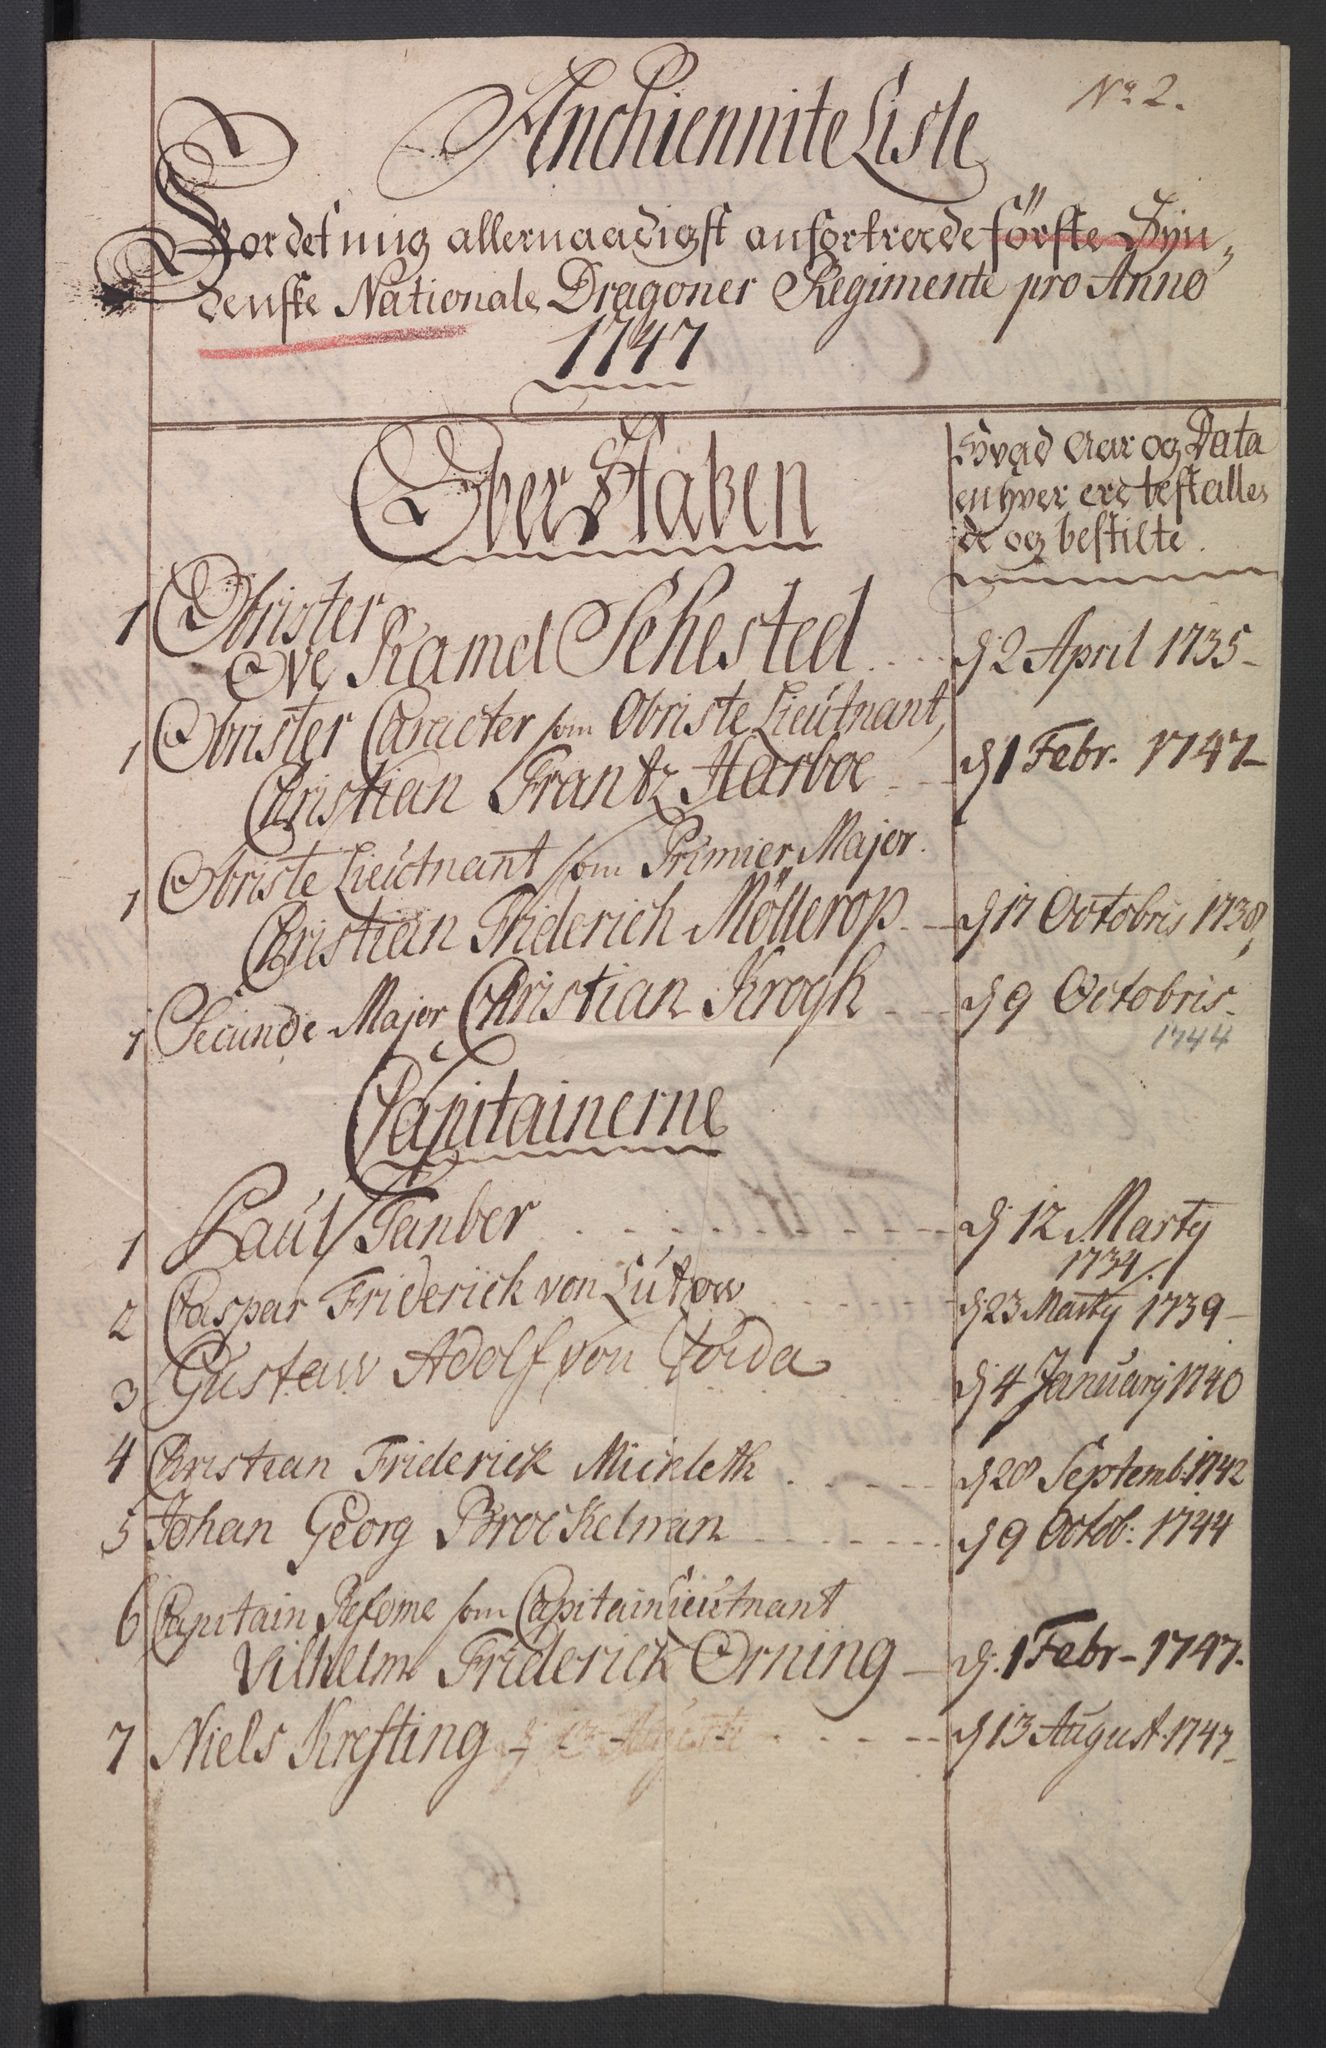 No 2.
Anchiennite Liste
For det mig allernaadigst anfortroede förste Syn,,
denske Nationale Dragoner Regimente pro Anno
1747
Hvad Aar og Data
en hver ere bestalle,
de og bestilte.
Ober Staben
1 Obrister
Ove Ramel Sehested .... d 2 April 1735
1 Obrister Caracter som Obriste Lieutnant,
Christian Frantz Harboe ... d 1 Febr. 1747
1 Obriste Lieutnant som Primier Major.
Christian Friderich Möllerop. d 17 Octobris 1738
1 Secunde Major Christian Krogh ... d 9 Octobris
1744
Capitainerne
1 Paul Tanber ... d 12 Martÿ
1734.
2 Caspar Friderich von Lützow ... d 23 Martÿ 1739
3 Gustaw Adolf von ... d 4 Januarÿ 1740
4 Christian Friderick Mickleth .... d 28 Septemb: 1742
5 Johan Georg Brockelman .... d 9 Octob: 1744
6 Capitain Refome som Capitain Lieutnant
Vilhelm Friderick Orning d. 1 Febr 1747.
7 Niels Krefting d 13 August ... d 13 August 1747